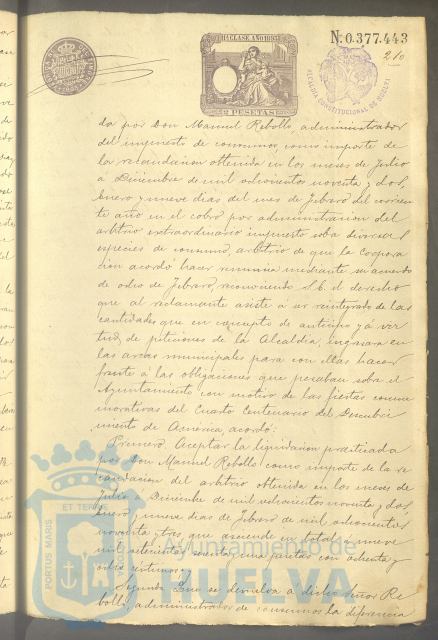 11ª CLASE AÑO 1893
2 PESETAS
N. 0.377.443
210
ALCALDIA CONSTITUCIONAL DE HUELVA
da por Don Manuel Rebollo, administrador
del impuesto de consumos, como importe de
la recaudacion obtenida en los meses de Julio
á Diciembre de mil ochocientos noventa y dos,
Enero y nueve dias del mes de Febrero del corrien
te año en el cobro por administracion del
arbitrio extraordinario impuesto sobre diversas
especies de consumo, arbitrio de que la Corpora
cion acordó hacer renuncia mediante su acuerdo
de ocho de Febrero, reconociendo S.E. el derecho
que al reclamante asiste á ser reintegrado de las
cantidades que en concepto de anticipo y á vir
tud de peticiones de la Alcaldia, ingresara en
las arcas municipales para con ellas hacer
frente á las obligaciones que pesaban sobre el
Ayuntamiento con motivo de las fiestas conme
morativas del Cuarto Centenario del Descubri
miento de América acordó:
Primero. Aceptar la liquidacion practicada
por Don Manuel Rebollo como importe de la re
caudacion del arbitrio obtenida en los meses de
Julio á Diciembre de mil ochocientos noventa y dos
Enero y nueve dias de Febrero de mil ochocientos
noventa y tres, que asciende en total á nueve
mil setecientas sesenta y una pesetas con ochenta y
ocho céntimos.
Segundo. Que se devuelva á dicho Señor Re
bollo, administrador de consumos la diferencia
PORTUS MARIS ET TERRAE
Ayuntamiento de
HUELVA